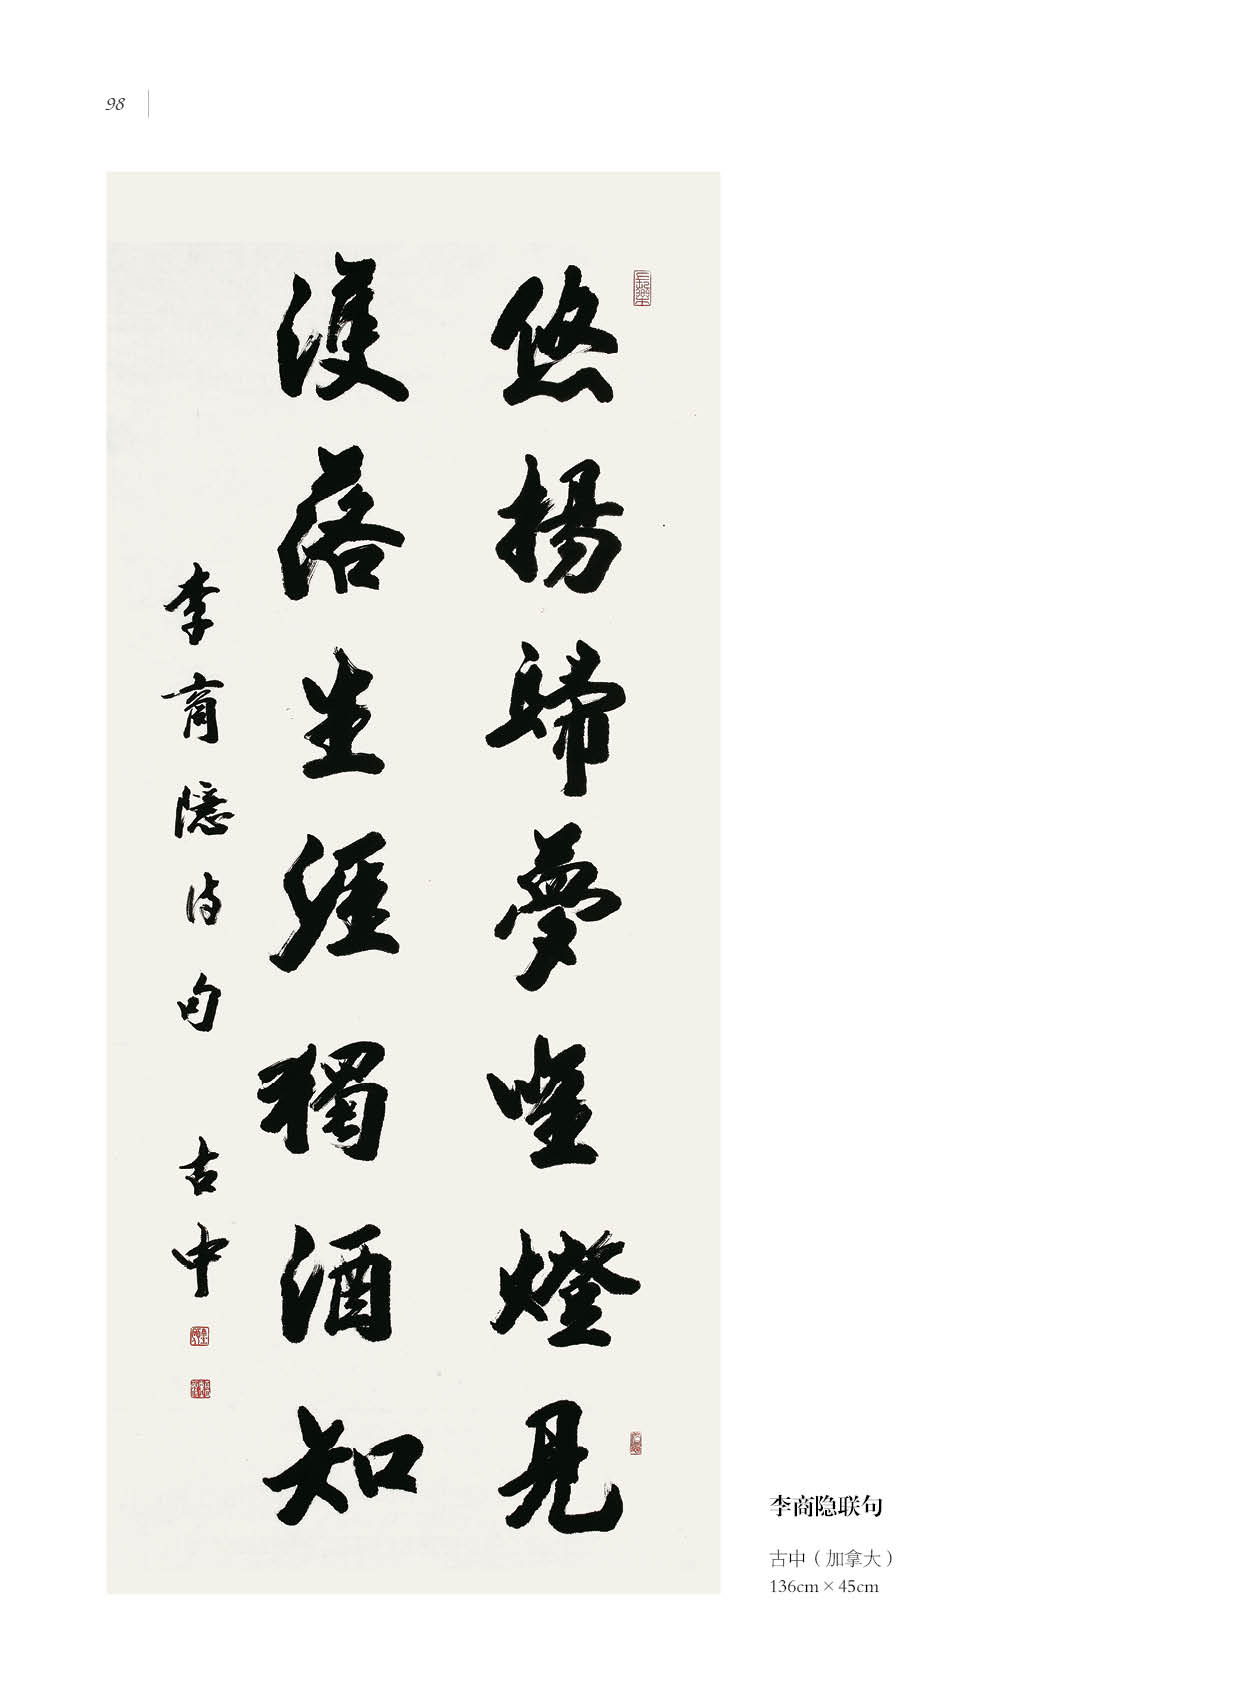 98
悠揚歸夢唯燈見
濩落生涯獨酒知
李商隱詩句 古中
李商隐联句
古中（加拿大）
136cm×45cm